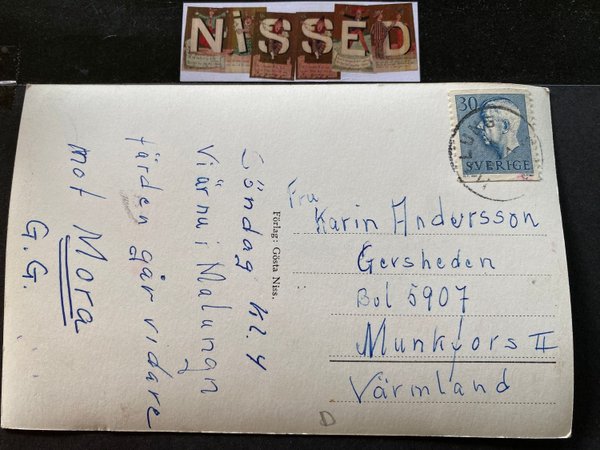 NISSED
30
SVERIGE
Söndag kl. 4
Vi är nu i Malung
färden går vidare
mot Mora
G.G.
Förlag: Gösta Niss.
Fru
Karin Andersson
Gersheden
Bol 5907
Munkfors II
Värmland
D